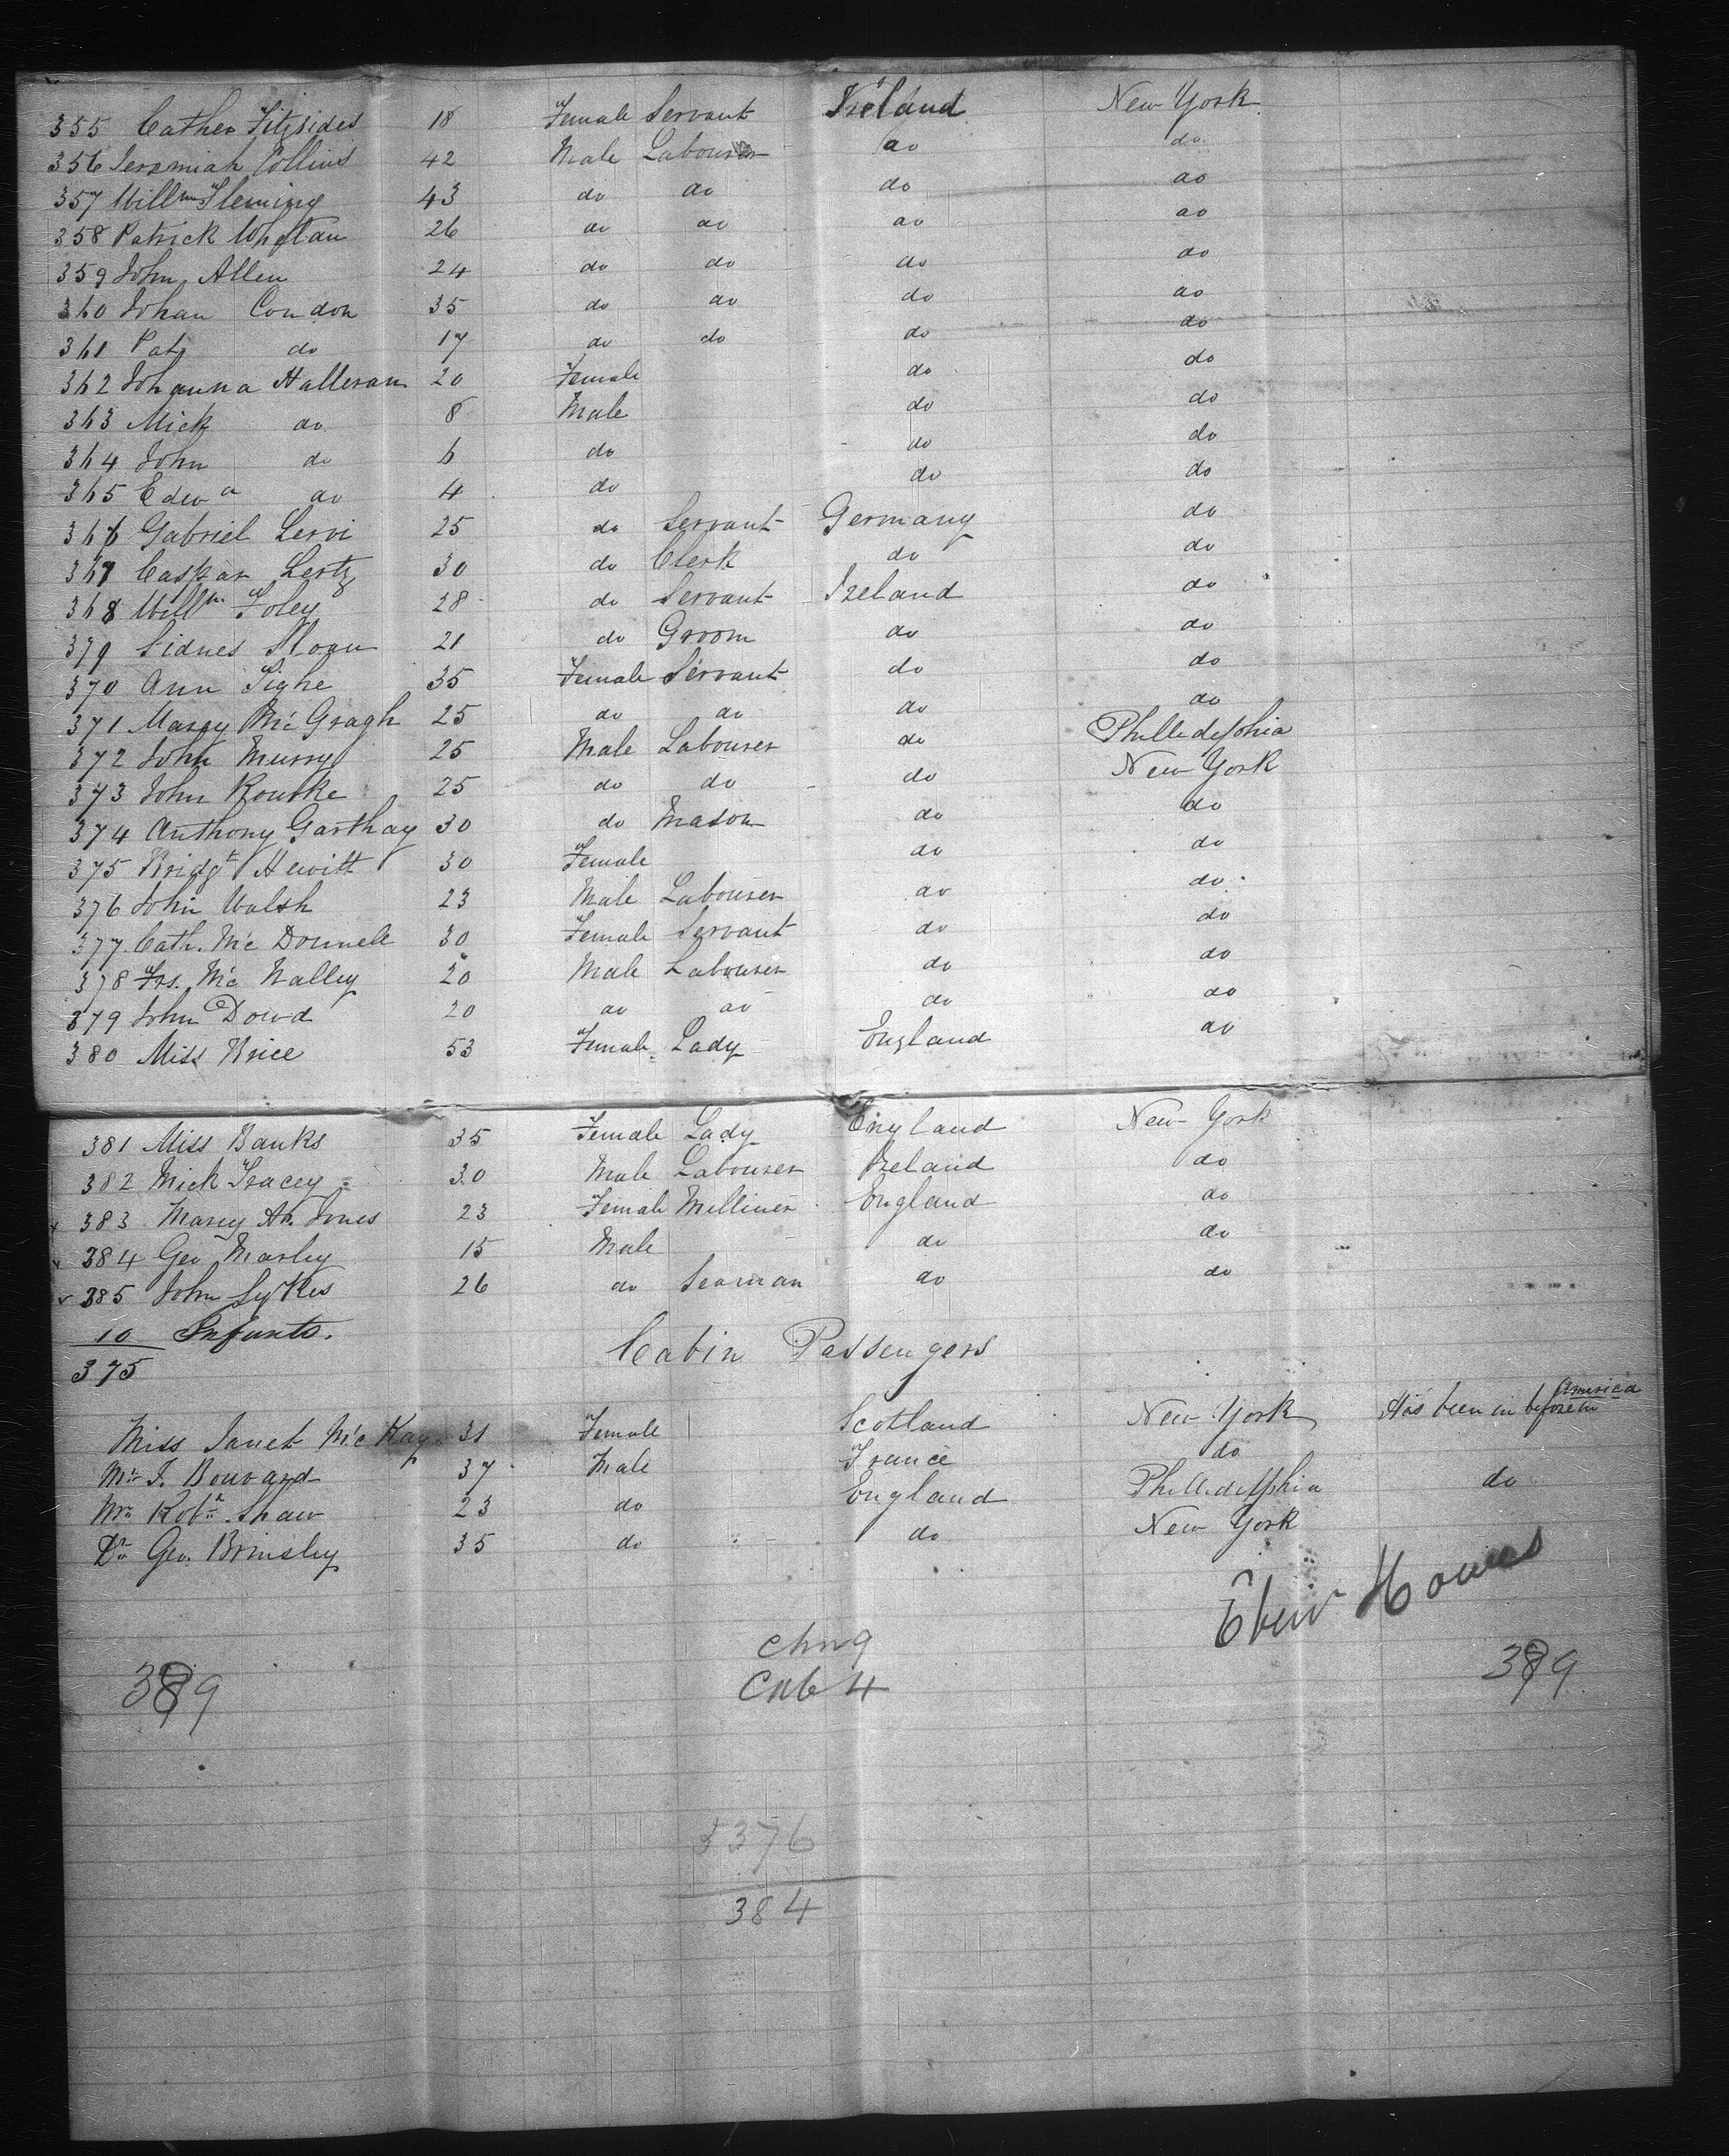 355 Cather Fitzsides 18 Female Servant Ireland New York
356 Jeremiah Collins 42 Male Labourer do do
357 Willm Fleming 43 do do do do
358 Patrick Whelan 26 do do do do
359 John Allen 24 do do do do
360 Johan Condon 35 do do do do
361 Pat do 17 do do do do
362 Johanna Halleran 20 Female do do
363 Mick do 8 Male do do
364 John do 6 do do do
365 Edwd do 4 do do do
366 Gabriel Lervi 25 do Servant Germany do
367 Caspar Lertz 30 do Clerk do do
368 Willm Foley 28 do Servant Ireland do
379 Sidnes Sloan 21 do Groom do do
370 Ann Tighe 35 Female Servant do do
371 Margy Mc Gragh 25 do do do do
372 John Murry 25 Male Labourer do Philledelphia
373 John Rourke 25 do do do New York
374 Anthony Garthay 30 do Mason do do
375 Bridgt Hewitt 30 Female do do
376 John Walsh 23 Male Labourer do do
377 Cath. Mc Donnele 30 Female Servant do do
378 Frs. Mc Nalley 20 Male Labourer do do
379 John Dowd 20 do do do do
380 Miss Brice 53 Female Lady England do
381 Miss Banks 35 Female Lady England New York
382 Mick Tracey 30 Male Labourer Ireland do
383 Marey An. Jones 23 Female Milliner England do
384 Geo Marley 15 Male do do
385 John Sykes 26 do Seaman do do
10 Infants.
375
Cabin Passengers
Miss Janet Mc Kay 31 Female Scotland New York Has been in America before
Mr J. Bouvard 37 Male France do
Mr Robt Shaw 23 do England Philledelphia do
Dr Geo. Brinsley 35 do do New York
Ebenr
389 389
Cab 4
5376
384